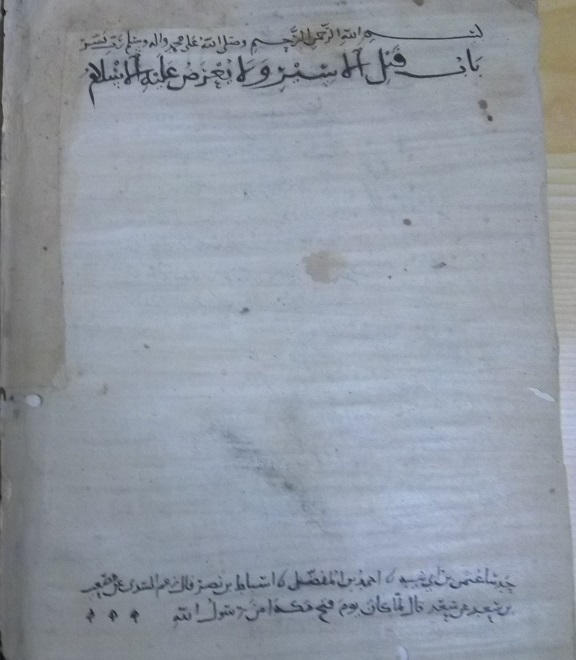 بسم الله الرحمن الرحيم وصلى الله على محمد واله وسلم رب يسر
باب قتل الاسير ولا يعرض عليه الاسلام
حدثنا عثمن بن ابي شيبه نا احمد بن المفضل نا اسباط بن نصر قال زعم السدي عن مصعب
بن سعد عن سعد قال لما كان يوم فتح مكة امن رسول الله